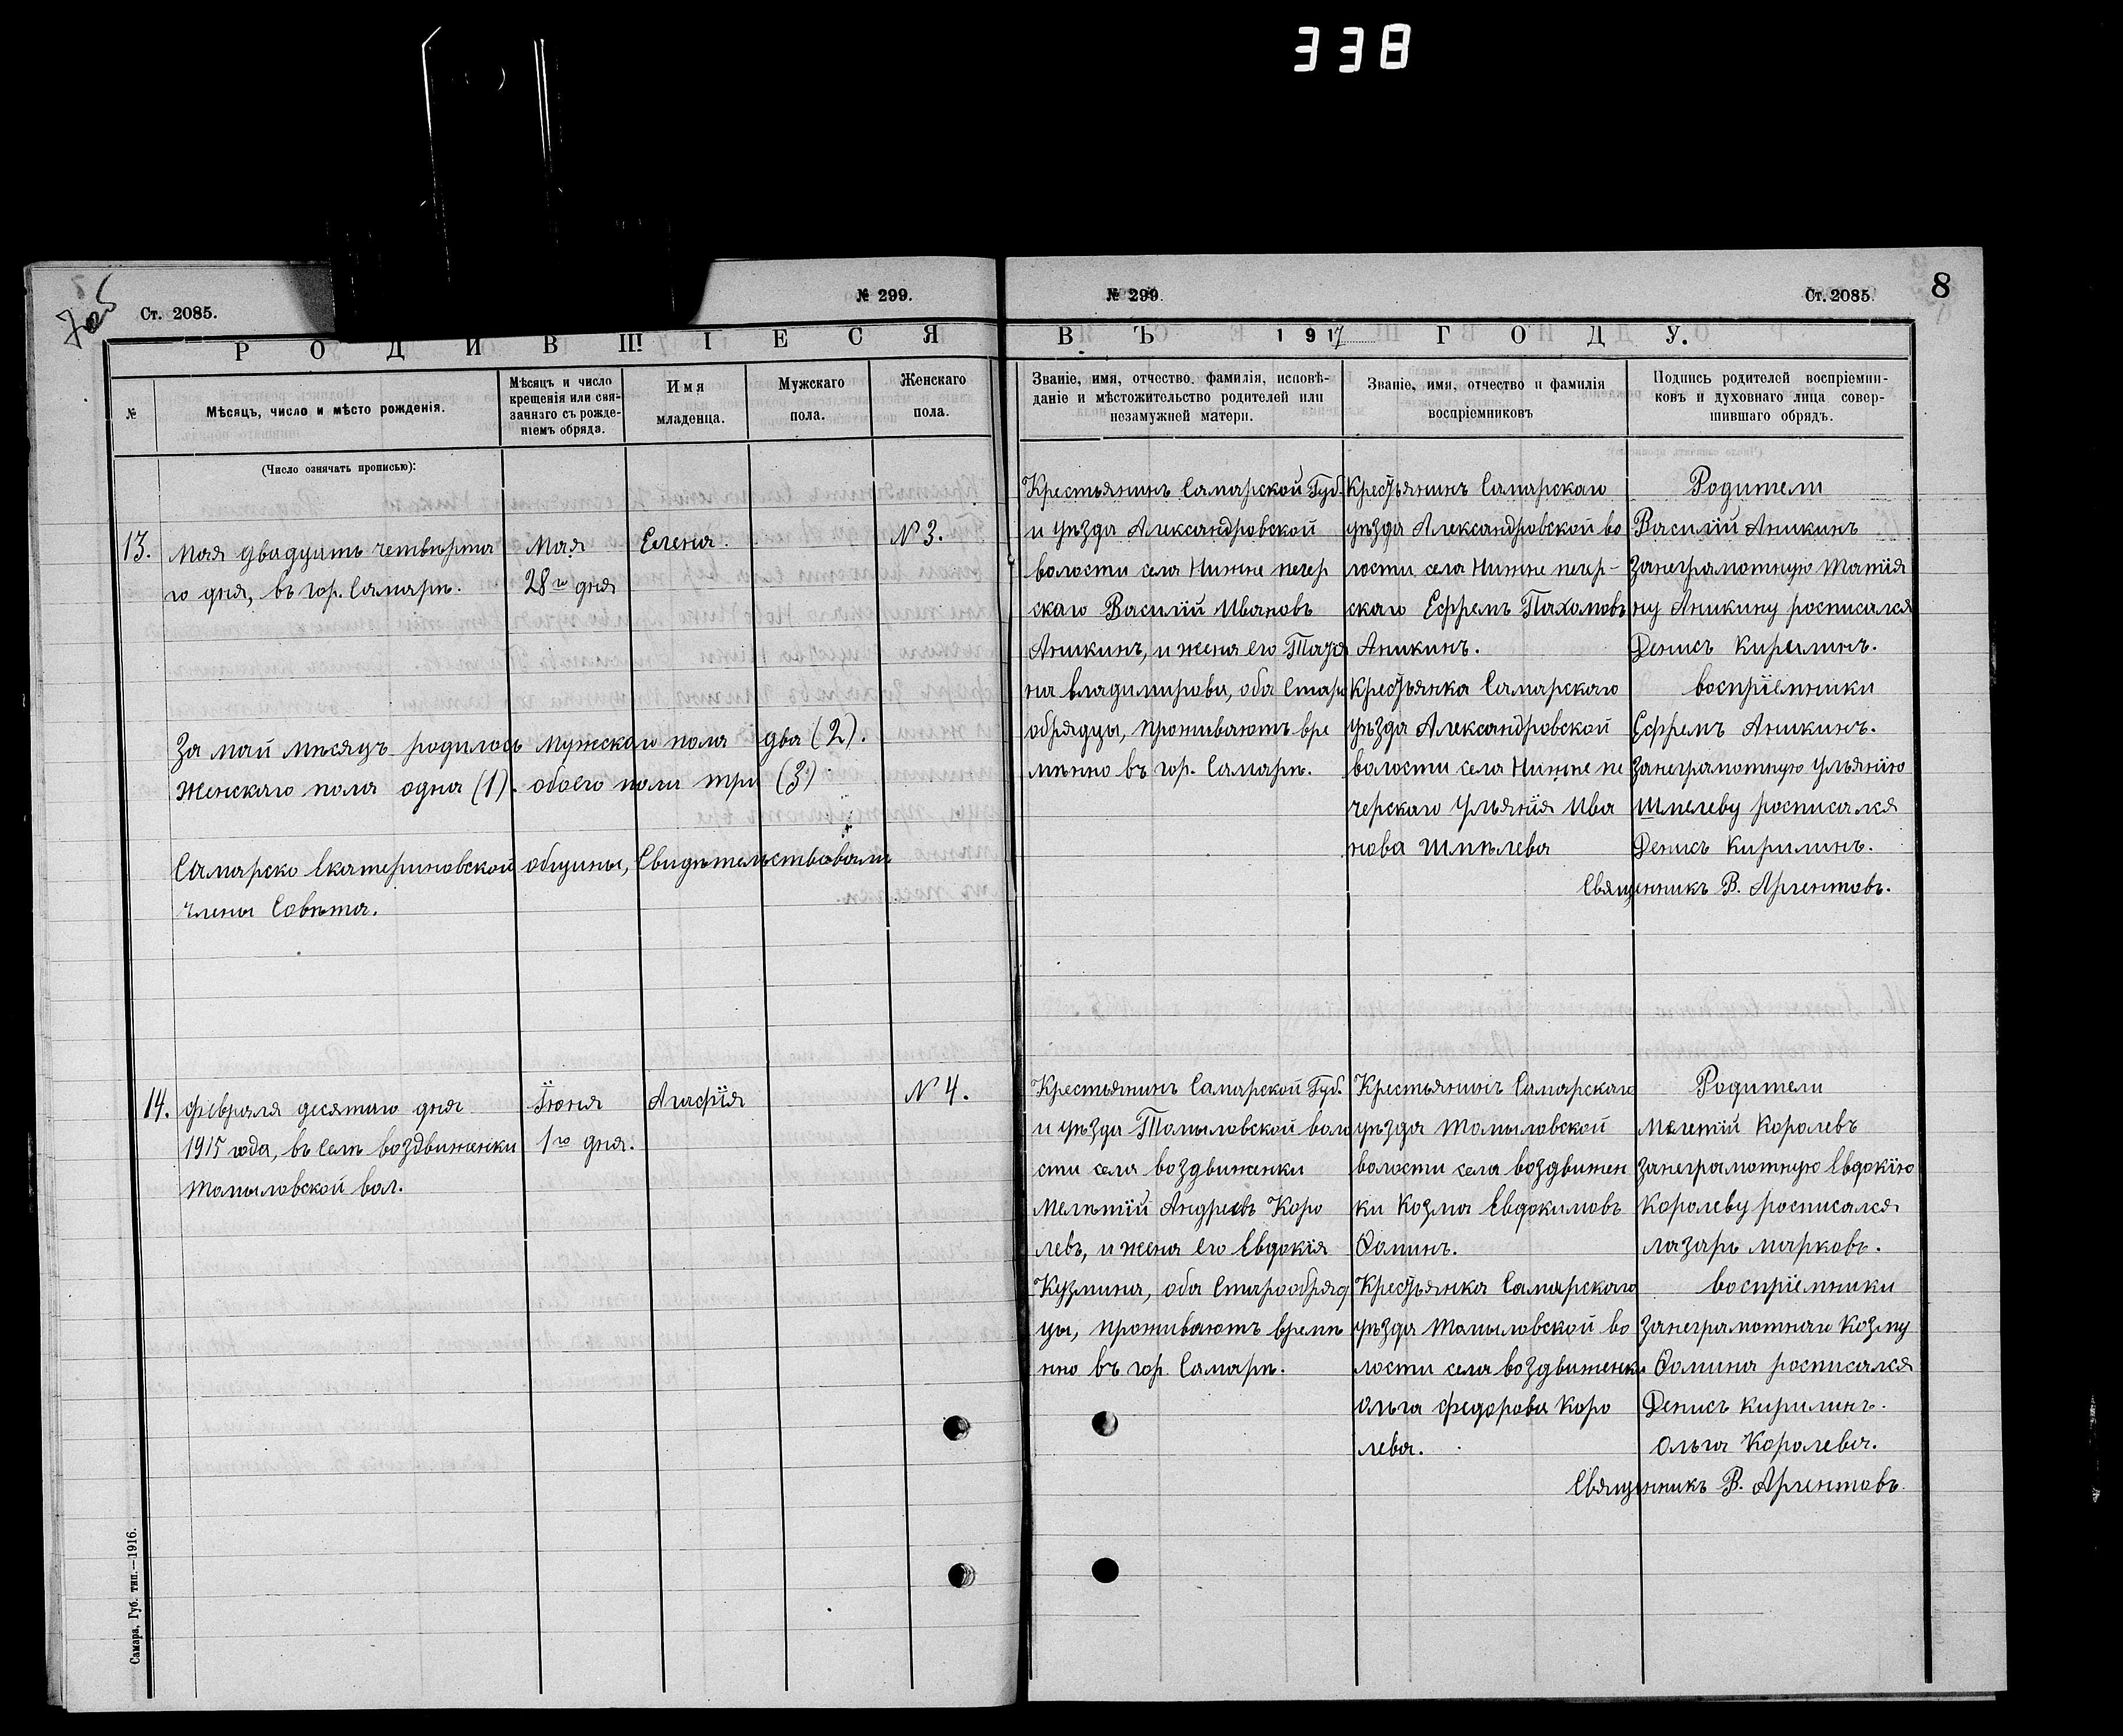 338
Ст. 2085.
№ 299.
№ 299.
Ст. 2085.
8
РОДИВШІЕСЯ
ВЪ 1917 ГОДУ.
№
Мѣсяцъ, число и мѣсто рожденія.
Мѣсяцъ и число
крещенія или свя-
заннаго съ рожде-
ніемъ обряда.
Имя
младенца.
Мужскаго
пола.
Женскаго
пола.
Званіе, имя, отчество, фамилія, исповѣ-
даніе и мѣстожительство родителей или
незамужней матери.
Званіе, имя, отчество и фамилія
воспріемниковъ
Подпись родителей воспріемни-
ковъ и духовнаго лица совер-
шившаго обрядъ.
(Число означать прописью):
13.
Мая двадцать четвѣрта
го дня, въ гор. Самарѣ.
Мая
28го дня
Елена.
№ 3.
Крестьянинъ Самарской Губ.
и уѣзда Александровской
волости села Нижне печер
скаго Василій Ивановъ
Аникинъ, и жена его Татія
на Владимирова, оба Старо
обрядцы, проживаютъ вре
мѣнно въ гор. Самарѣ.
Крестьянинъ Самарскаго
уѣзда Александровской во
лости села Нижне печер-
скаго Ефремъ Пахомовъ
Аникинъ.
Крестьянка Самарскаго
уѣзда Александровской
волости села Нижне пе
черскаго Ульянія Ива
нова Шмѣлева
Родители
Василій Аникинъ
Занеграмотную Татія
ну Аникину росписался
Денисъ Кирилинъ.
воспріемники
Ефремъ Аникинъ.
Занеграмотную Ульянію
Шмелеву росписался
Денисъ Кирилинъ.
Священникъ В. Аргентовъ.
За май мѣсяцъ родилось мужскаго пола два (2).
Женскаго пола одна (1). обоего пола три (3)
Самарско Екатериновской общины, Свидѣтельствовали
члены Совѣта.
14.
Февраля десятаго дня
1915 года, въ селѣ воздвиженки
Томыловской вол.
Іюня
1го дня.
Агафія
№ 4.
Крестьянинъ Самарской Губ.
и уѣзда Томыловской воло
сти села воздвиженки
Мелѣтій Андреевъ Коро
левъ, и жена его Евдокія
Кузмина, оба Старообряд
цы, проживаютъ времѣ
нно въ гор. Самарѣ.
Крестьянинъ Самарскаго
уѣзда Томыловской
волости села воздвижен
ки Козма Евдокимовъ
Ѳоминъ.
Крестьянка Самарскаго
уѣзда Томыловской во
лости села воздвиженки
Ольга Федорова Коро
лева.
Родители
Мелетій Королевъ
Занеграмотную Евдокію
Королеву росписался
лазарь марковъ.
воспріемники
Занеграмотнаго Козму
Ѳомина росписался
Денисъ Кирилинъ.
Ольга Королева.
Священникъ В. Аргентовъ
Самара, Губ. тип.—1916.